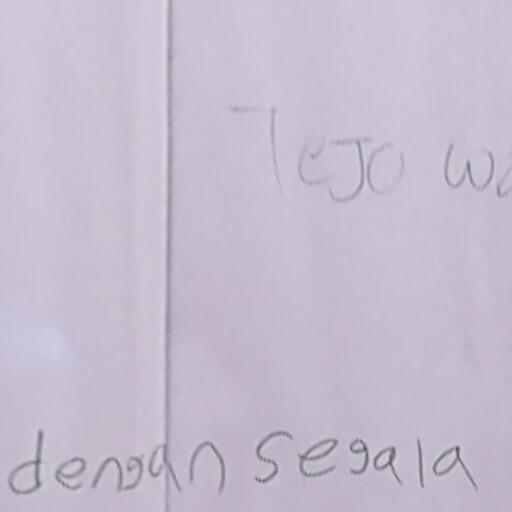 Tejo
dengan segala